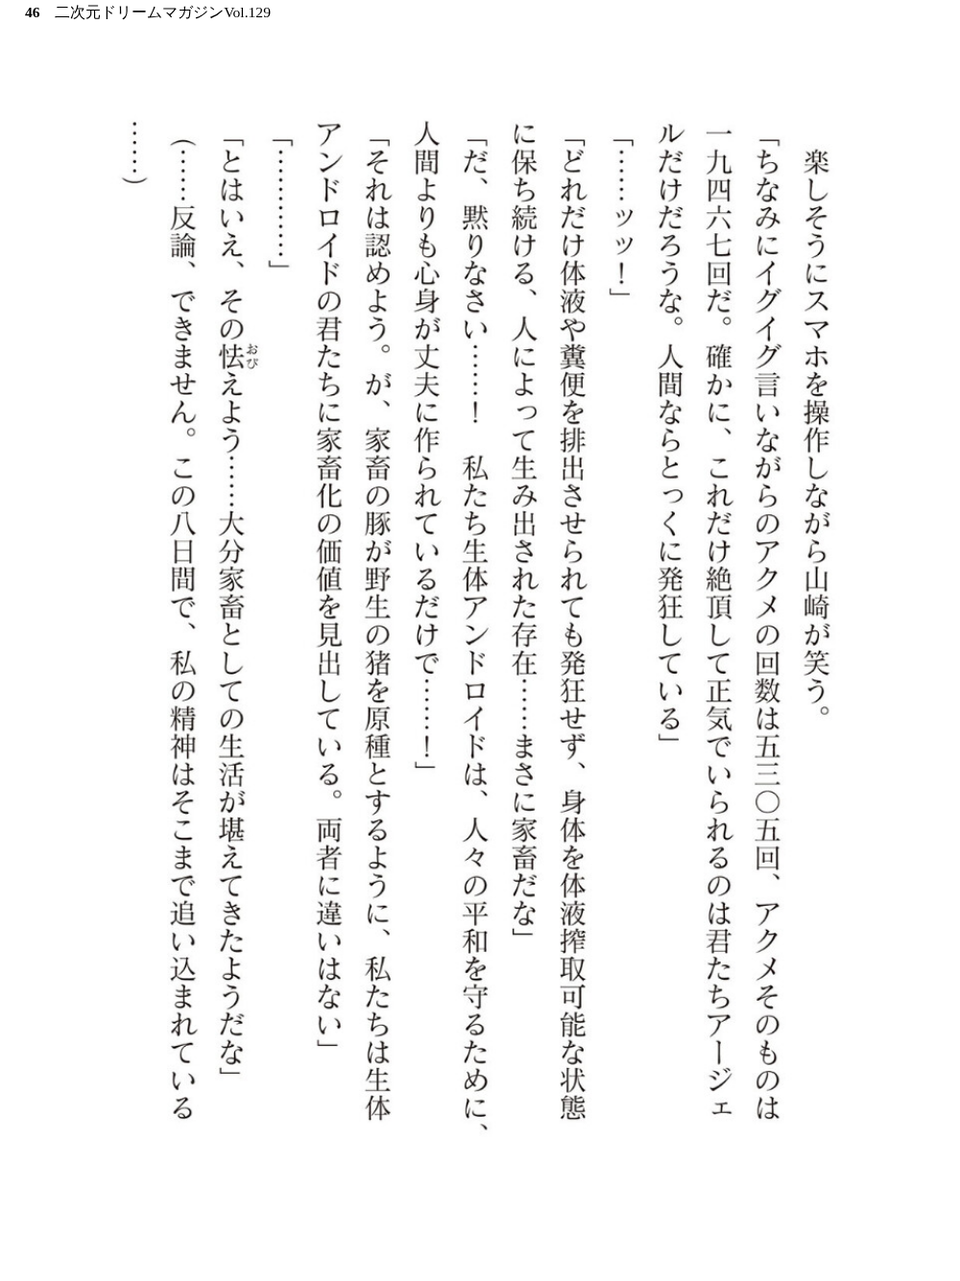 46 二次元ドリームマガジンVol.129
楽しそうにスマホを操作しながら山崎が笑う。
「ちなみにイグイグ言いながらのアクメの回数は五三〇五回、アクメそのものは
一九四六七回だ。確かに、これだけ絶頂して正気でいられるのは君たちアージェ
ルだけだろうな。人間ならとっくに発狂している」
「……ッッ！」
「どれだけ体液や糞便を排出させられても発狂せず、身体を体液搾取可能な状態
に保ち続ける、人によって生み出された存在……まさに家畜だな」
「だ、黙りなさい……！　私たち生体アンドロイドは、人々の平和を守るために、
人間よりも心身が丈夫に作られているだけで……！」
「それは認めよう。が、家畜の豚が野生の猪を原種とするように、私たちは生体
アンドロイドの君たちに家畜化の価値を見出している。両者に違いはない」
「…………」
「とはいえ、その怯おびえよう……大分家畜としての生活が堪えてきたようだな」
（……反論、できません。この八日間で、私の精神はそこまで追い込まれている
……）